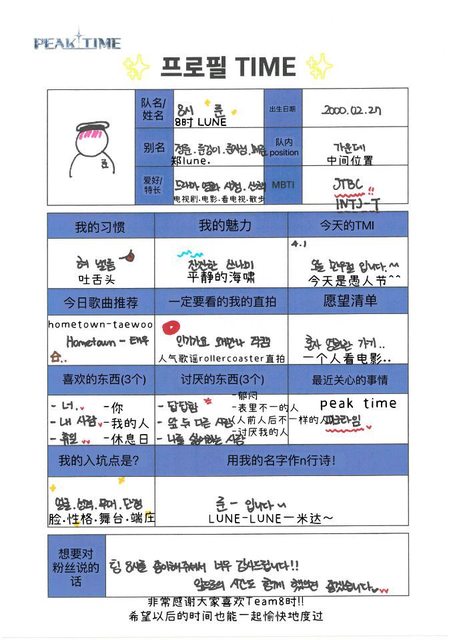 PEAK TIME
프로필 TIME
队名/
姓名
8시 준
8时 LUNE
出生日期
2000.02.27
别名
郑lune.
队内
position
가운데
中间位置
爱好/
特长
드라마 영화 시청, 산책
电视剧·电影·看电视·散步
MBTI
JTBC
INTJ-T
我的习惯
我的魅力
今天的TMI
혀 낼름
吐舌头
잔잔한 쓰나미
平静的海啸
4.1
오늘 만우절 입니다.^^
今天是愚人节^^
今日歌曲推荐
一定要看的我的直拍
愿望清单
hometown-taewoo
Hometown - 태우
인기가요 롤러코스터 직캠
人气歌谣rollercoaster直拍
혼자 영화관 가기..
一个人看电影..
喜欢的东西(3个)
讨厌的东西(3个)
最近关心的事情
- 너.
- 내 사람
- 휴일
-你
-我的人
-休息日
- 답답함
- 앞 뒤 다른 사람
- 나를 싫어하는 사람
-郁闷
-表里不一的人
(人前人后不一样的人)
-讨厌我的人
peak time
피크타임
我的入坑点是?
用我的名字作n行诗!
얼굴.성격.무대.단정
脸.性格.舞台.端庄
준 - 입니다~
LUNE-LUNE一米达~
想要对
粉丝说的
话
팀 8시를 좋아해주셔서 너무 감사드립니다!!
앞으로의 시간도 함께 했으면 좋겠습니다.
非常感谢大家喜欢Team8时!!
希望以后的时间也能一起愉快地度过